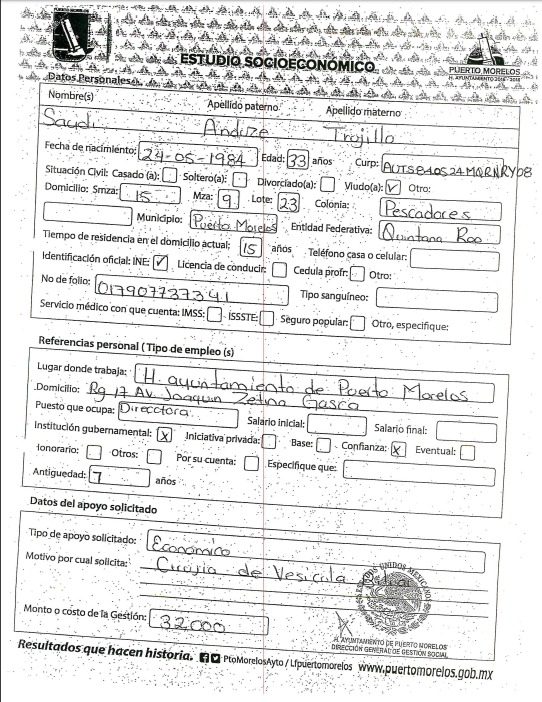 PUERTO MORELOS
ESTUDIO SOCIOECONÓMICO
PUERTO MORELOS
H. AYUNTAMIENTO 2016 - 2018
Datos Personales
Nombre(s) Apellido paterno Apellido materno
Saydi Andize Trujillo
Fecha de nacimiento: 24-05-1984 Edad: 33 años Curp: AUTS840524MQRNRY08
Situación Civil: Casado (a): Soltero(a): Divorciado(a): Viudo(a): ✓ Otro:
Domicilio: Smza: 15 Mza: 9 Lote: 23 Colonia: Pescadores
Municipio: Puerto Morelos Entidad Federativa: Quintana Roo
Tiempo de residencia en el domicilio actual: 15 años Teléfono casa o celular:
Identificación oficial: INE: ✓ Licencia de conducir: Cedula profr: Otro:
No de folio: 017907737341 Tipo sanguíneo:
Servicio médico con que cuenta: IMSS: ISSSTE: Seguro popular: Otro, especifique:
Referencias personal (Tipo de empleo (s)
Lugar donde trabaja: H. ayuntamiento de Puerto Morelos
Domicilio: Rg 17 Av. Joaquin Zetina Gasca
Puesto que ocupa: Direcctora Salario inicial: Salario final:
Institución gubernamental: X Iniciativa privada: Base: Confianza: X Eventual:
Honorario: Otros: Por su cuenta: Especifique que:
Antiguedad: 7 años
Datos del apoyo solicitado
Tipo de apoyo solicitado: Economico
Motivo por cual solicita: Cirujia de Vesicula
UNIDOS MEXICANOS
Monto o costo de la Gestión: 32000
H. AYUNTAMIENTO DE PUERTO MORELOS
DIRECCIÓN GENERAL DE GESTIÓN SOCIAL
Resultados que hacen historia. PtoMorelosAyto / Lfpuertomorelos www.puertomorelos.gob.mx